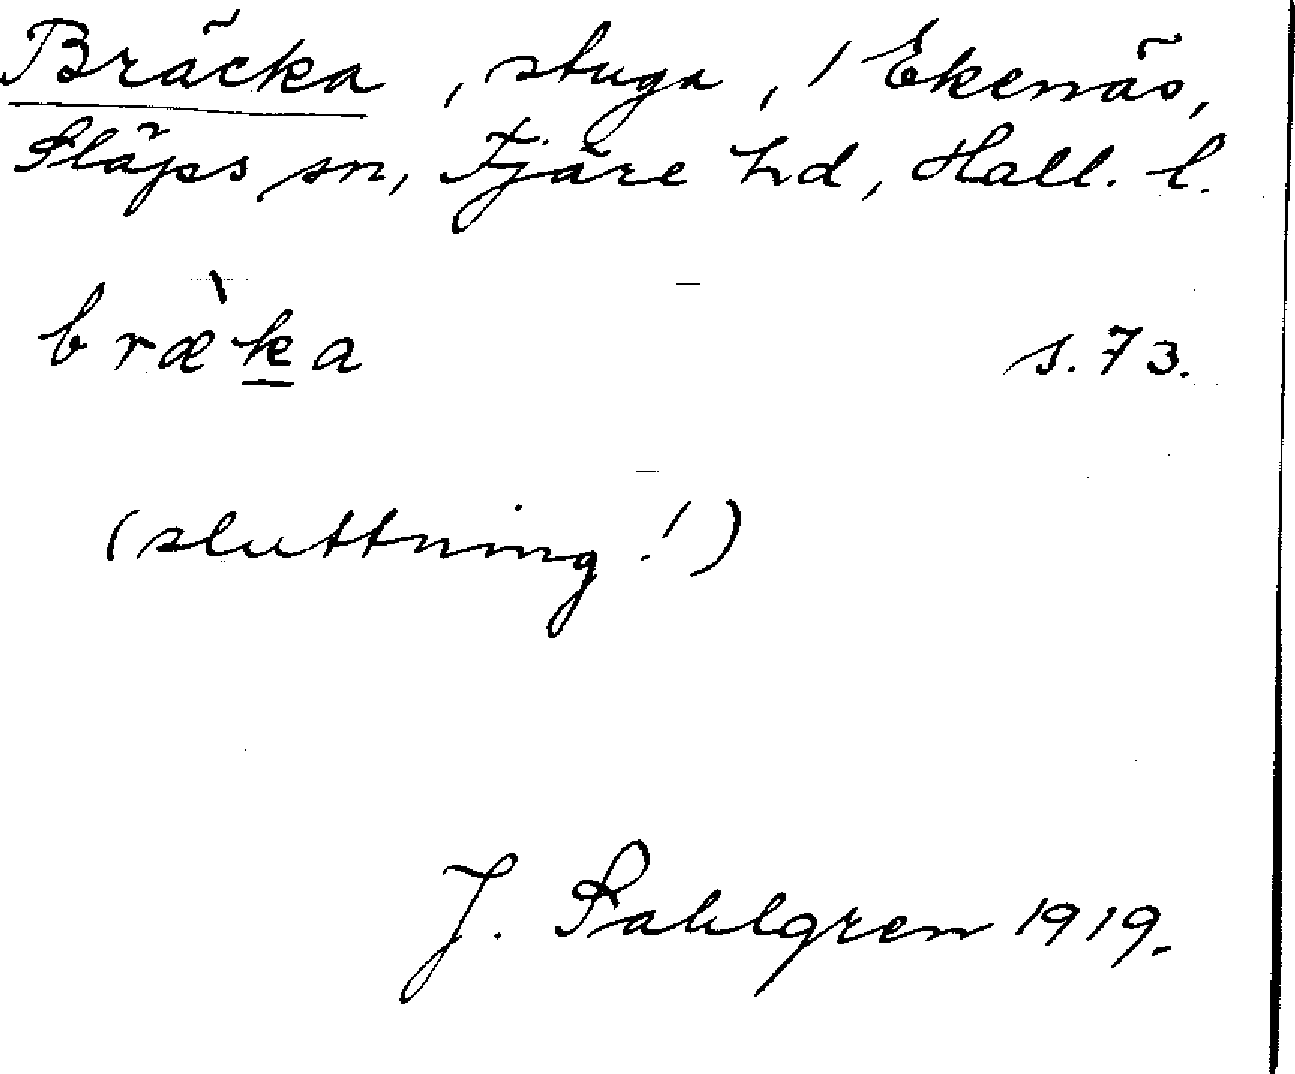 Bräcka, stuga, 1 Ekenäs,
Släps sn, Fjäre hd, Hall. l.
bræ̀ka s. 73.
(sluttning!)
J. Sahlgren 1919.